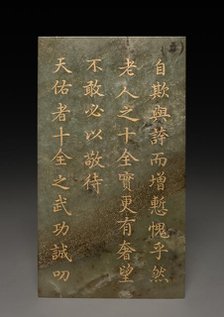 自欺與諍而增慙愧乎然
老人之十全實更有奢望
不敢必以敬待
天佑者十全之武功誠叨